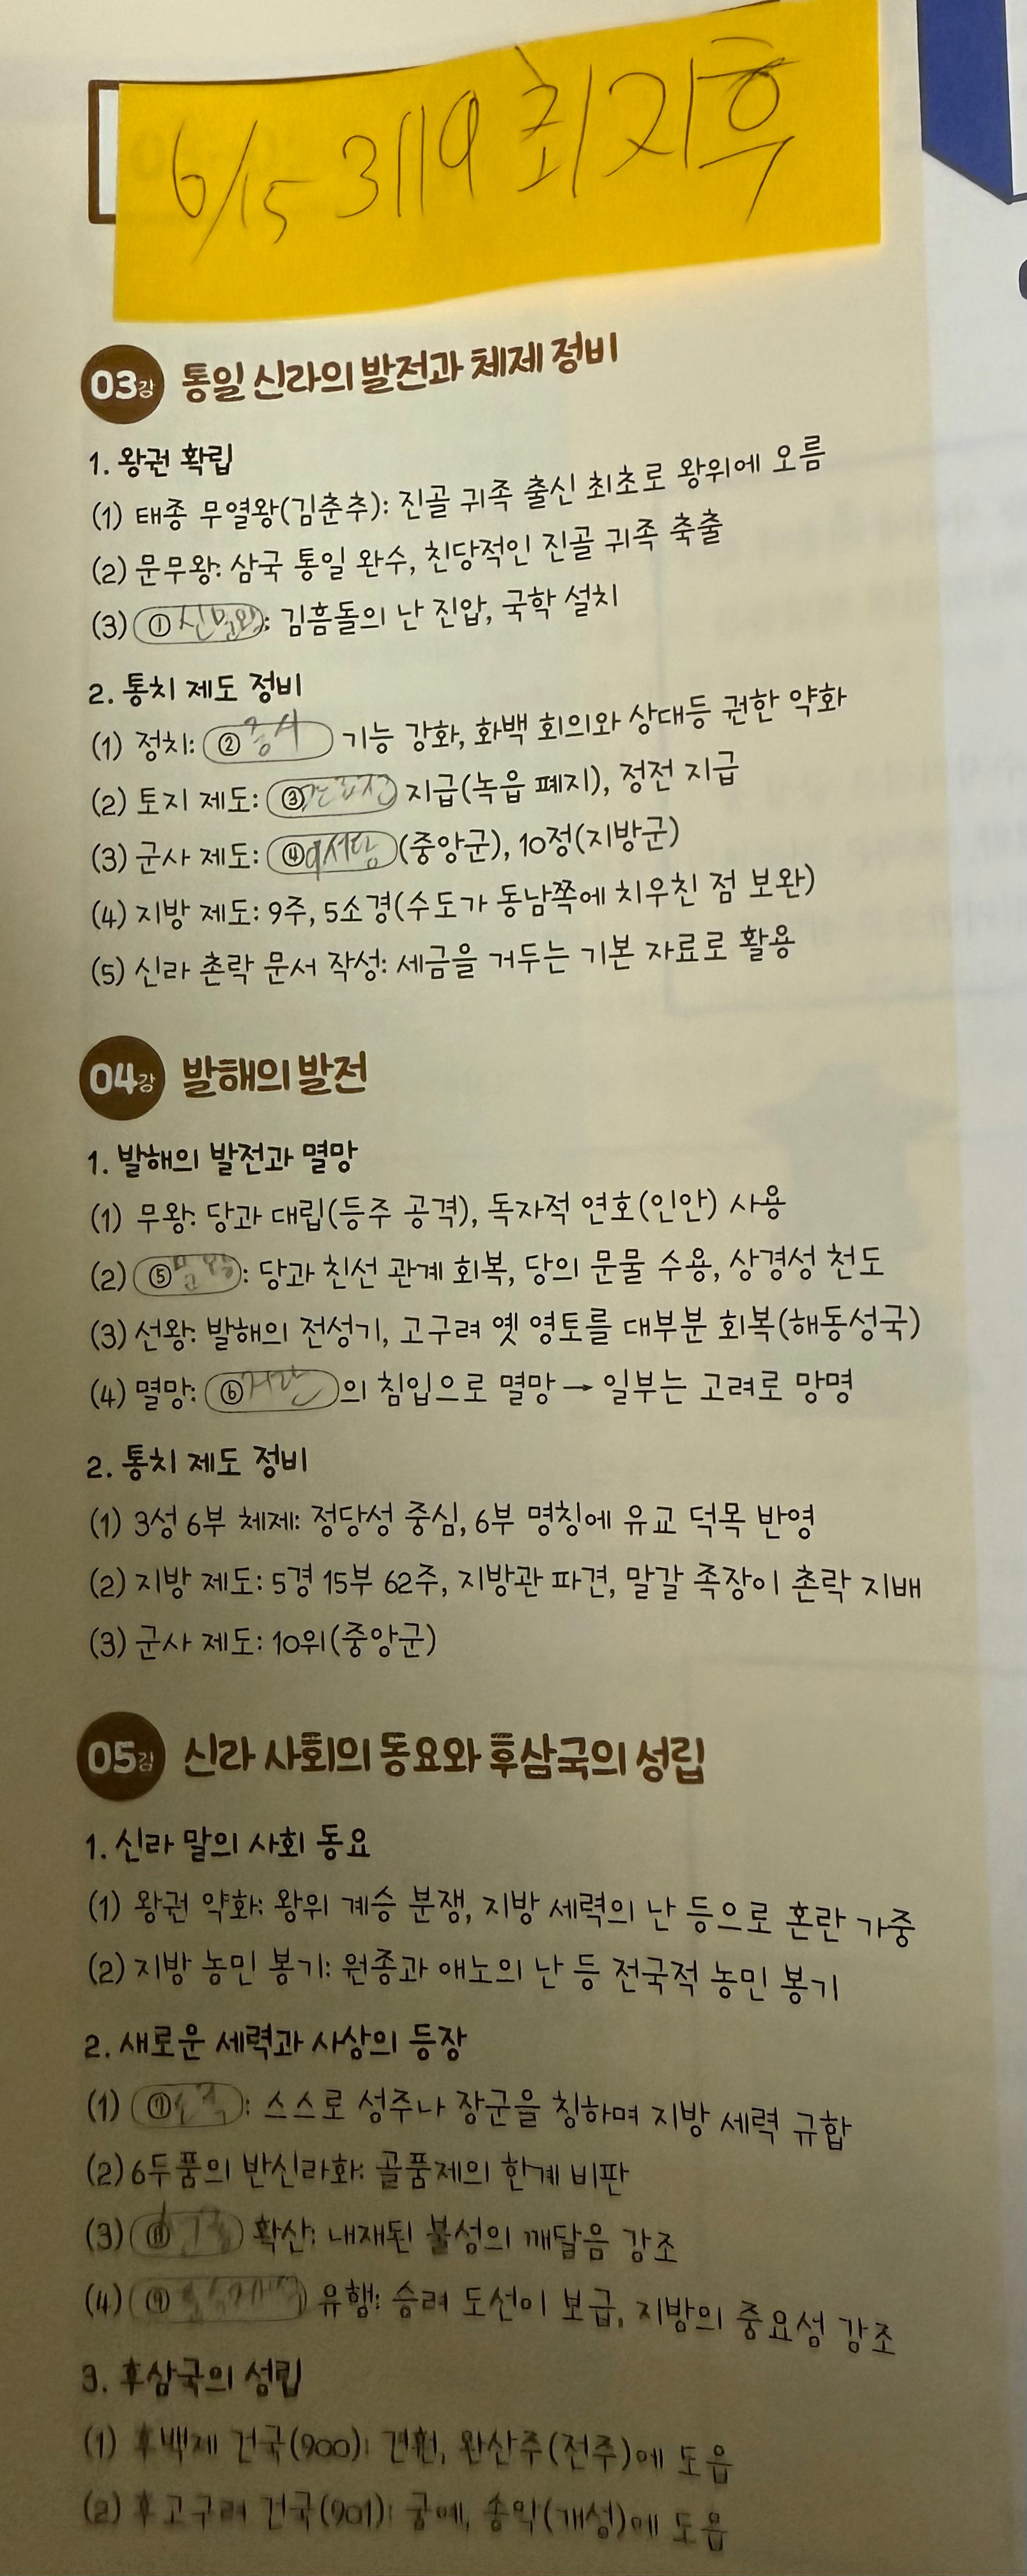 6/15 3119 최지후
03강 통일 신라의 발전과 체제 정비
1. 왕권 확립
(1) 태종 무열왕(김춘추): 진골 귀족 출신 최초로 왕위에 오름
(2) 문무왕: 삼국 통일 완수, 친당적인 진골 귀족 축출
(3) ① 신문왕: 김흠돌의 난 진압, 국학 설치
2. 통치 제도 정비
(1) 정치: ② 기능 강화, 화백 회의와 상대등 권한 약화
(2) 토지 제도: ③ 관료전 지급(녹읍 폐지), 정전 지급
(3) 군사 제도: ④ 9서당 (중앙군), 10정(지방군)
(4) 지방 제도: 9주, 5소경(수도가 동남쪽에 치우친 점 보완)
(5) 신라 촌락 문서 작성: 세금을 거두는 기본 자료로 활용
04강 발해의 발전
1. 발해의 발전과 멸망
(1) 무왕: 당과 대립(등주 공격), 독자적 연호(인안) 사용
(2) ⑤ 문왕: 당과 친선 관계 회복, 당의 문물 수용, 상경성 천도
(3) 선왕: 발해의 전성기, 고구려 옛 영토를 대부분 회복(해동성국)
(4) 멸망: ⑥ 거란의 침입으로 멸망 → 일부는 고려로 망명
2. 통치 제도 정비
(1) 3성 6부 체제: 정당성 중심, 6부 명칭에 유교 덕목 반영
(2) 지방 제도: 5경 15부 62주, 지방관 파견, 말갈 족장이 촌락 지배
(3) 군사 제도: 10위(중앙군)
05강 신라 사회의 동요와 후삼국의 성립
1. 신라 말의 사회 동요
(1) 왕권 약화: 왕위 계승 분쟁, 지방 세력의 난 등으로 혼란 가중
(2) 지방 농민 봉기: 원종과 애노의 난 등 전국적 농민 봉기
2. 새로운 세력과 사상의 등장
(1) ⑦ 호족: 스스로 성주나 장군을 칭하며 지방 세력 규합
(2) 6두품의 반신라화: 골품제의 한계 비판
(3) ⑧ 확산: 내재된 불성의 깨달음 강조
(4) ⑨ 유행: 승려 도선이 보급, 지방의 중요성 강조
3. 후삼국의 성립
(1) 후백제 건국(900): 견훤, 완산주(전주)에 도읍
(2) 후고구려 건국(901): 궁예, 송악(개성)에 도읍